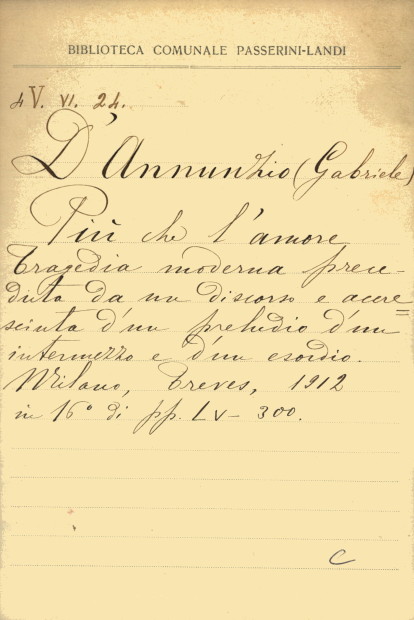 BIBLIOTECA COMUNALE PASSERINI-LANDI
4 V. VI. 24.
D'Annunzio (Gabriele)
Più che l'amore
Tragedia moderna prece-
duta da un discorso e accre=
sciuta d'un preludio d'un
intermezzo e d'un esordio.
Milano, Treves, 1912
in 16° di pp. LV- 300.
C